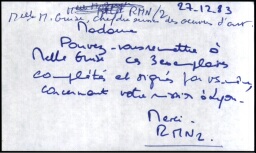 27.12.83
Melle M. Guise, chef du service des oeuvres d'art
RMN/2
Madame
Pouvez-vous remettre à
Melle Guise ces 3 exemplaires
complétés et signés par vs-même
concernant votre mission à Lyon.
Merci.
RMN2.